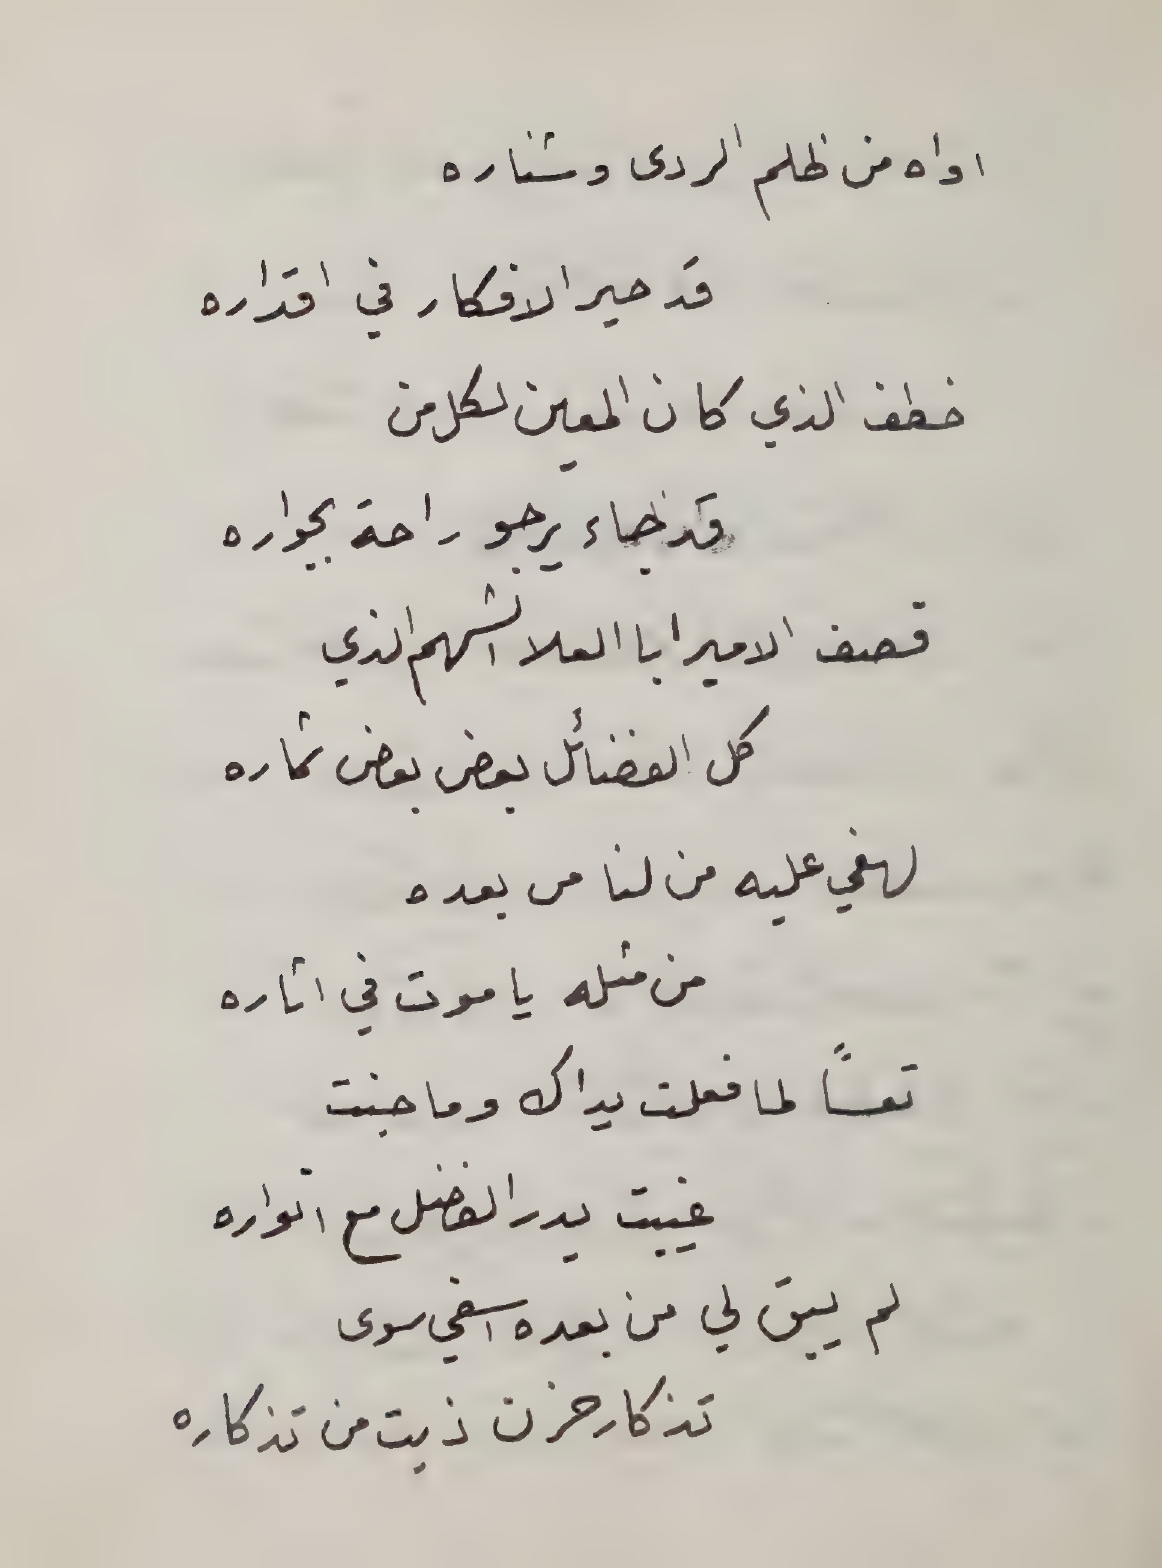 اواه من ظلم الردى وشناره
قد حير الافكار في اقداره
خطف الذي كان المعين لكل من
قد جاء يرجو راحة بجواره
قصف الامير ابا العلا الشهم الذي
كل الفضائل بعض بعض ثماره
لهفي عليه من لنا من بعده
من مثله يا موت في اثاره
تعساً لما فعلت يداك وما جنت
غيبت بدر الفضل مع انواره
لم يبق لي من بعده اسفي سوى
تذكار حزن ذبت من تذكاره